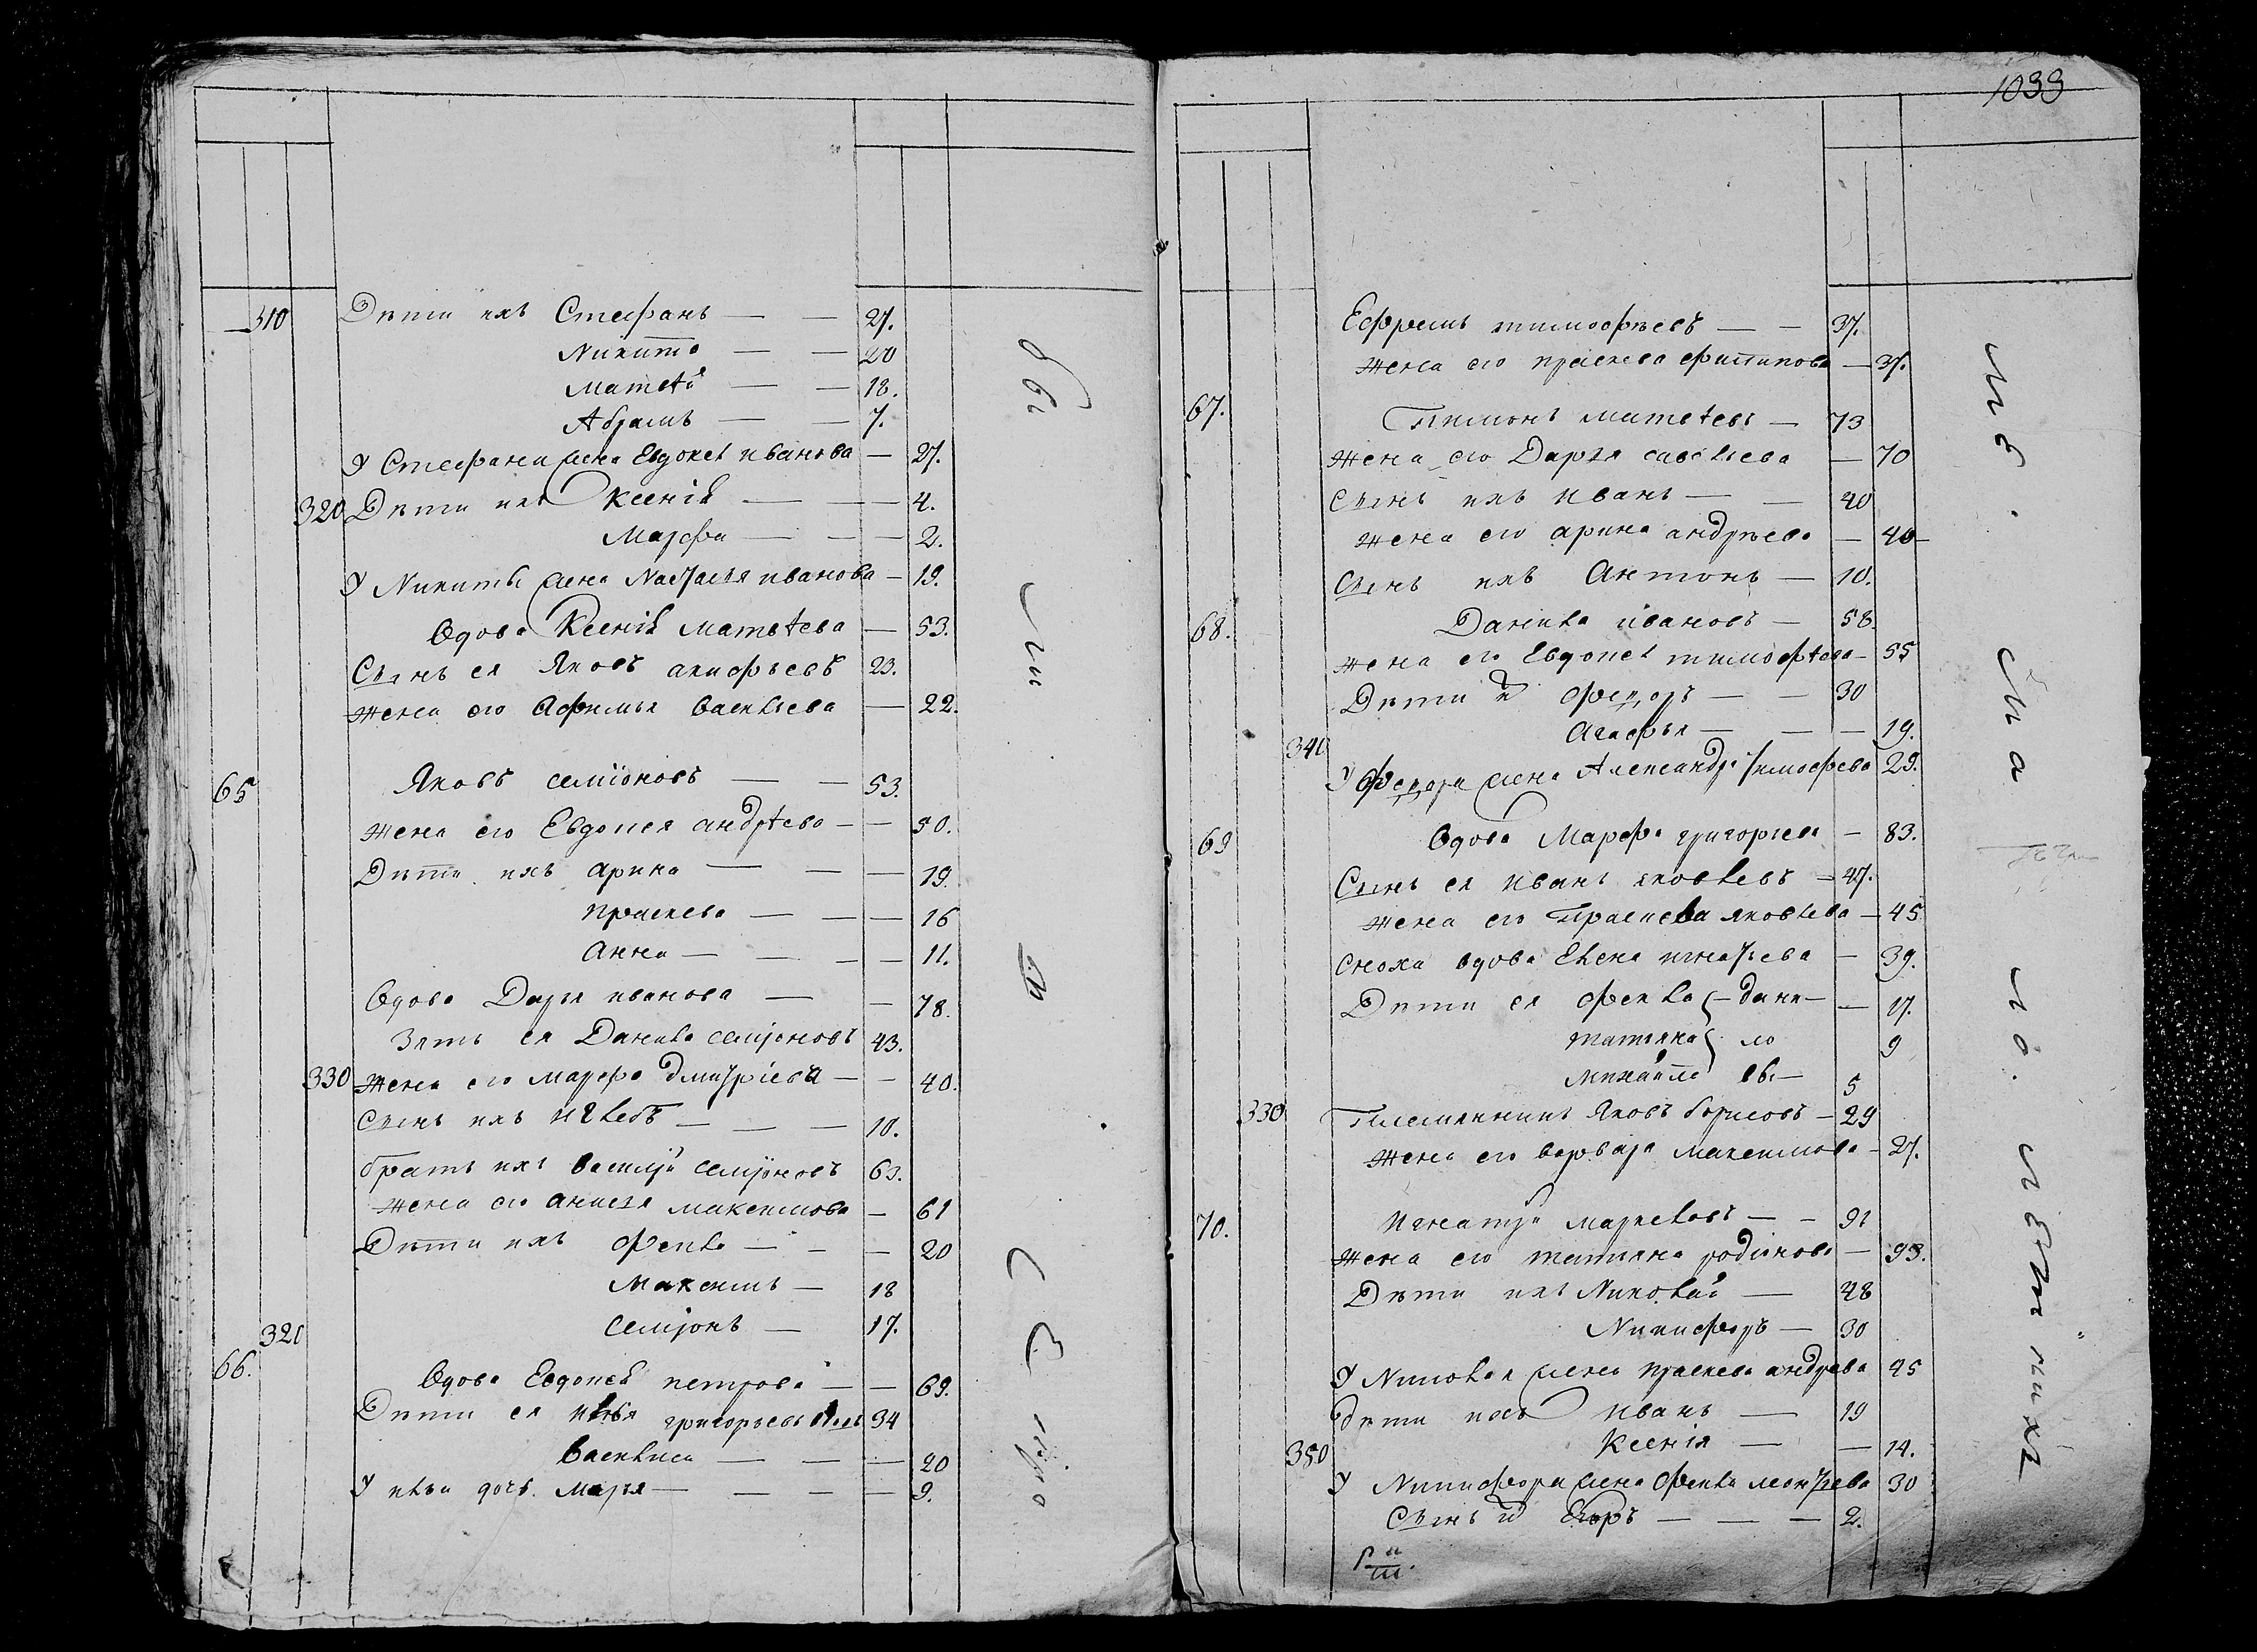 310 Дѣти ихъ Стефанъ — — 27.
Никита — — 20
Матвѣй — — 18.
Абрамъ — — 7.
У Стефана жена Евдокея иванова — 27.
320 Дѣти ихъ Ксенія — — 4.
Марфа — — — 2.
У Никиты жена Настасья иванова — 19.
Вдова Ксенія матвѣева — 53.
Сынъ ея Яковъ 23.
жена его Афимья васильева — 22.
65 Яковъ семіоновъ — — 53.
жена его Евдокея андрѣева — — 50.
Дѣти ихъ арина — — — 19.
праскева — — — 16
анна — — — — 11.
Вдова Дарья иванова — — 78.
Зять ея Данила семіоновъ 43.
330 жена его марфа дмитріева — — 40.
Сынъ ихъ — — — 10.
братъ ихъ василій семіоновъ 63.
жена его анисья максимова — 61
Дѣти ихъ Фекла — — — 20
Максимъ — 18
320 семіонъ — 17.
66. Вдова Евдокея петрова — — 69.
Дѣти ея илья григорьевъ 34
василиса — — — 20
У ильи дочь марья — — — — 9.
вы
ш
ф
с
з
1033
Ефремъ тимофѣевъ — — 37.
жена его праскева филипова — 37.
67. Пимонъ матвѣевъ — 73
жена его Дарья савельева — 70
Сынъ ихъ иванъ — — 40
жена его арина андрѣева — 40
Сынъ ихъ антонъ — 10.
68. Данила ивановъ — 58.
жена его Евдокея тимофѣева — 55
Дѣти ихъ федоръ — — 30
агафья — — — 19.
340 У федора жена Александра тимофева 29.
69 Вдова Марфа григорьева — 83.
Сынъ ея иванъ яковлевъ — 47.
жена его Праскева яковлева — 45
Сноха вдова Елена игнатьева — 39.
Дѣти ея фекла — дани — — 17.
татьяна ло 9
михайла вы — 5
330 Племянникъ Яковъ борисовъ — 29
жена его варвара максимова — 27.
70. игнатій маркеловъ — — 91
жена его татьяна родионова — 93.
Дѣти ихъ Николай — 48
Никифоръ — 30
У Николая жена праскева андрева 45
дѣти ихъ иванъ — 19
350 Ксенія — — 14.
У Никифора жена фекла леонтьева 30
Сынъ ихъ Егоръ — — — 2.